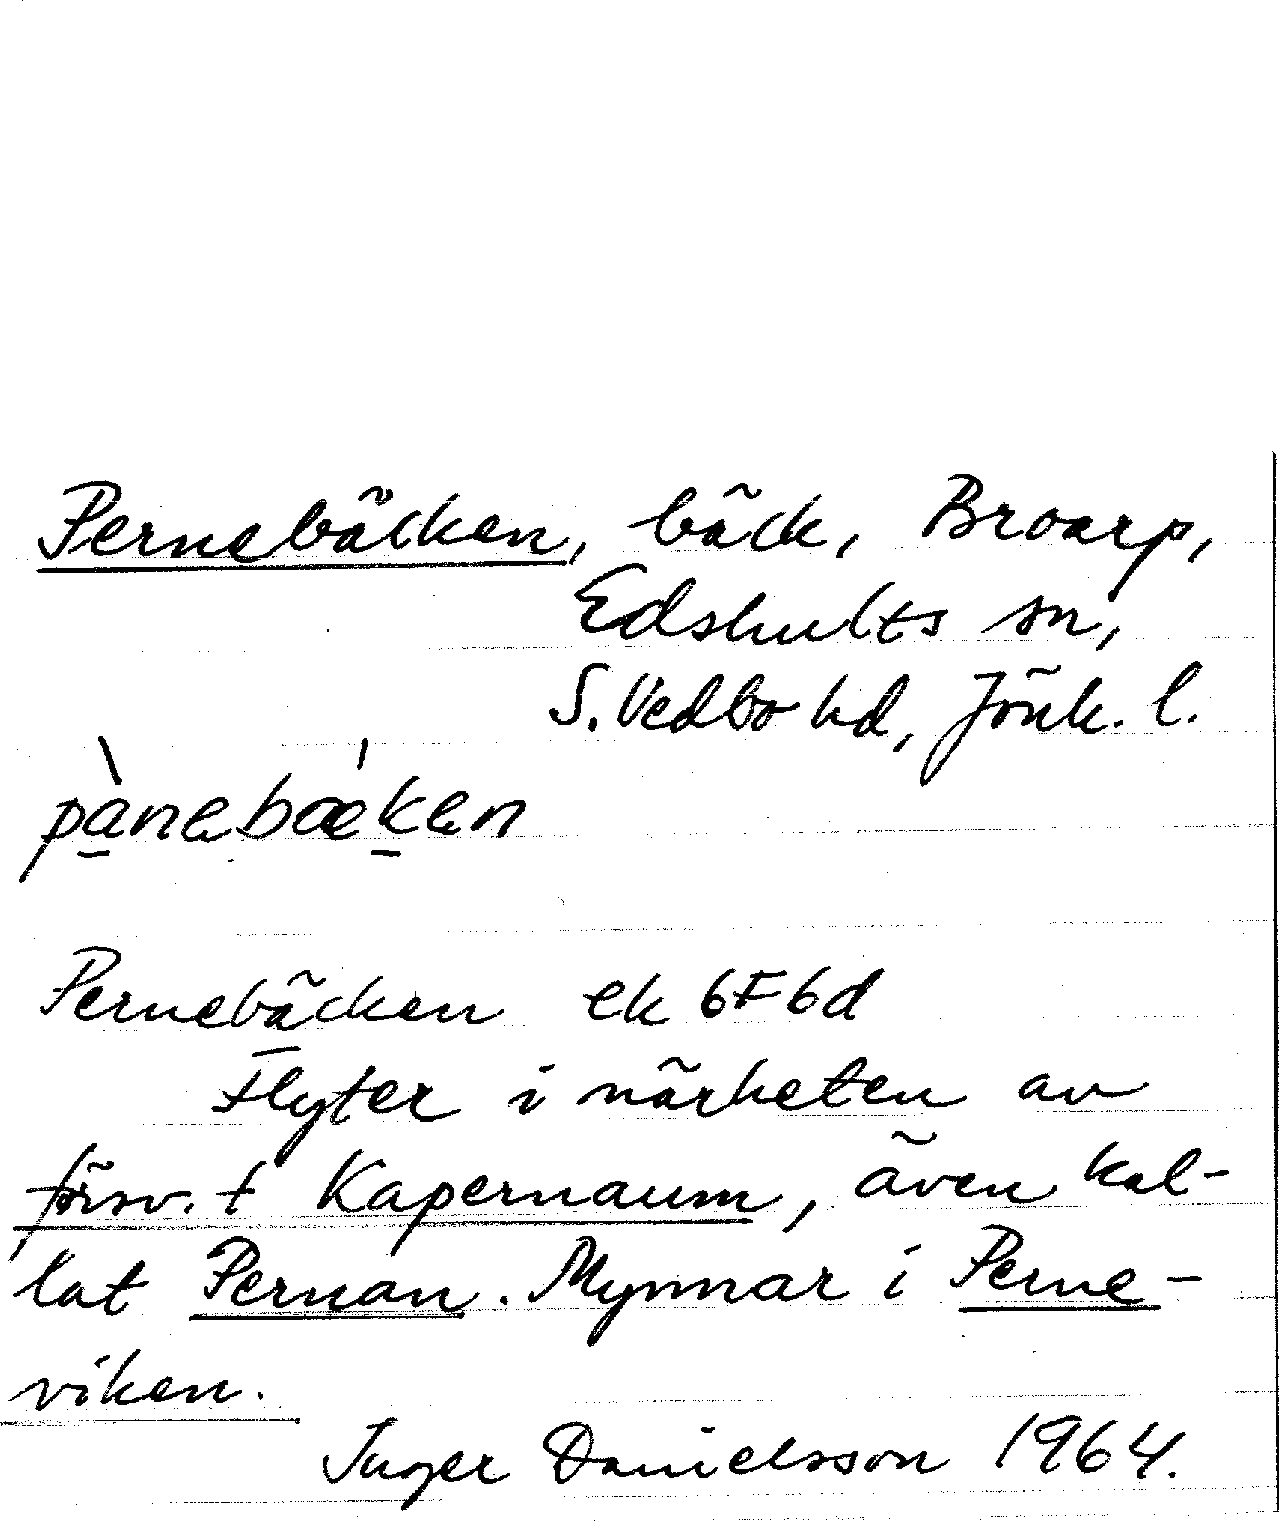 Pernebäcken, bäck, Broarp,
Edshults sn,
S. Vedbo hd, Jönk. l.
pànebæ̀ken
Pernebäcken ek 6F6d
Flyter i närheten av
försv. t Kapernaum, även kal-
lat Pernan. Mynnar i Perne-
viken.
Inger Danielsson 1964.